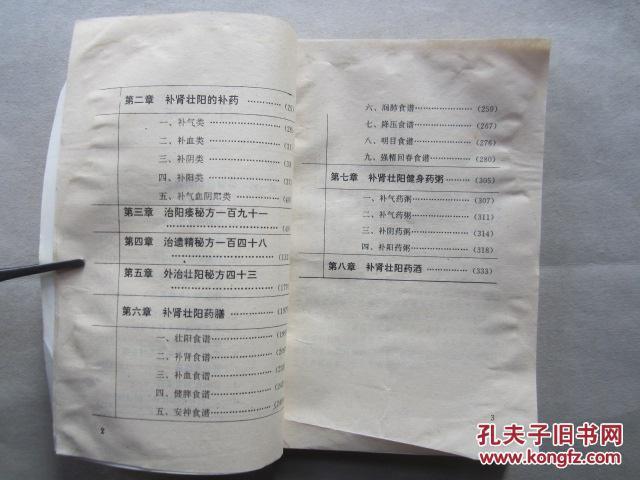 第二章 补肾壮阳的补药
一、补气类
二、补血类
三、补阴类
四、补阳类
五、补气血阴阳类
第三章 治阳痿秘方一百九十一
第四章 治遗精秘方一百四十八
第五章 外治壮阳秘方四十三
第六章 补肾壮阳药膳
一、壮阳食谱
二、补肾食谱
三、补血食谱
四、健脾食谱
五、安神食谱
2
六、润肺食谱……………(259)
七、降压食谱……………(267)
八、明目食谱……………(276)
九、强精回春食谱………(280)
第七章 补肾壮阳健身药粥……(305)
一、补气药粥……………(307)
二、补气药粥……………(311)
三、补阴药粥……………(314)
四、补阳药粥……………(318)
第八章 补肾壮阳药酒…………(333)
3
孔夫子旧书网
www.kongfz.com